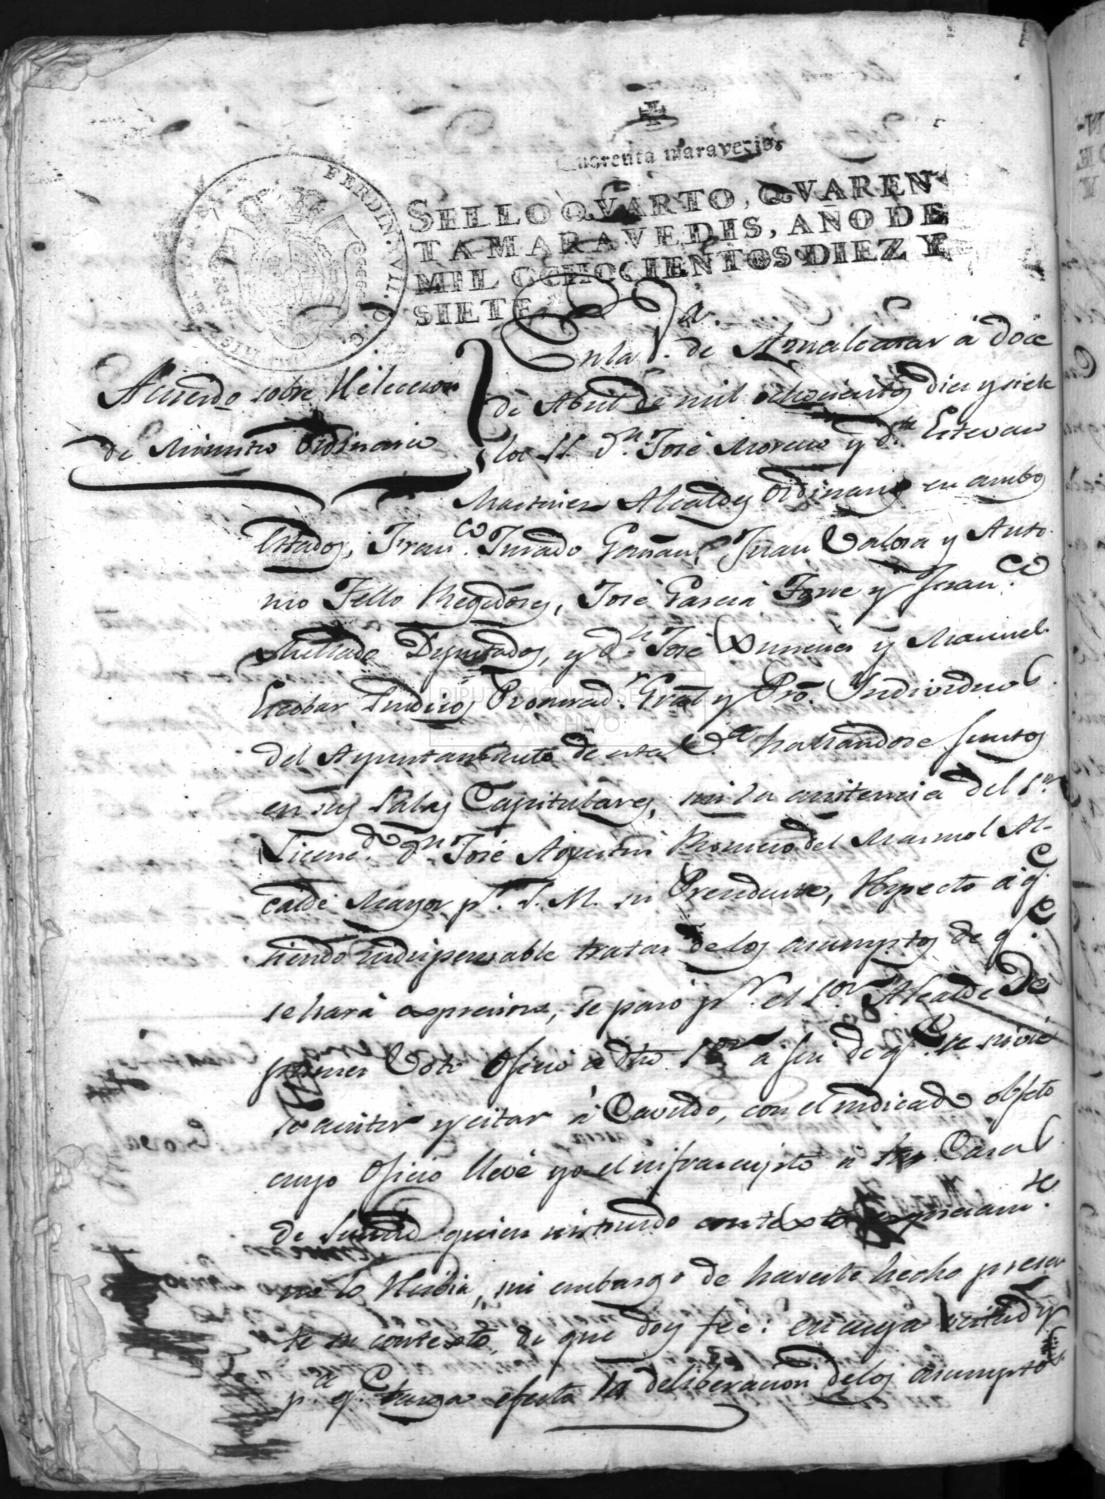 Quarenta maravedis
SELLO QVARTO, QVAREN
TA MARAVEDIS, AÑO DE
MIL OCHOCIENTOS DIEZ Y
SIETE.
FERDIN. VII. D. G.
Acuerdo sobre
de Ministro Ordinario
En la Vª. de Aznalcazar á doce
de Abril de mil ochocientos diez y siete
los SS. Dn. José Moreno y dn. Estevan
Martinez Alcaldes Ordinarios en ambos
Estados, Franco. Jurado Juan y Anto
nio Tello Regidores, José Garcia y Juan
Hurtado Diputados, y dn. José Ximenes y Manuel
Escobar Sindicos Procurador. Gral y Pro. Individuos
del Ayuntamiento de esta Va. hallandose juntos
en sus Salas Capitulares, sin la asistencia del Sr.
Licend. dn. José Agustin del Marmol Al-
calde Mayor pr. S. M. su Presidente, respecto á qe
siendo indispensable tratar de los asumptos de qe.
se hará expresion, se pasó pr. el Sor. Alcalde de
primer Voto oficio a dho Sor. a fin de qe. se sirvie
se asistir y citar á Cavildo, con el indicado objeto
cuyo oficio llevé yo el infraescripto a las Casas
de quien instruido
no lo recibia, sin embargo de haverle hecho presen
te su contexto, de que doy fee: en cuya virtud y
pa. qe. tenga efecto la deliberacion de los asumptos
DIPUTACION DE SE
ARCHIVO